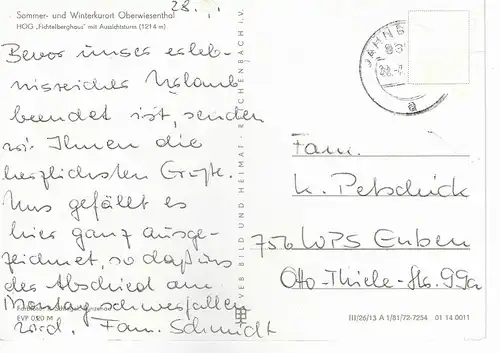 28.
Sommer- und Winterkurort Oberwiesenthal
HOG „Fichtelberghaus" mit Aussichtsturm (1214 m)
Bevor unser erleb-
nisreicher Urlaub
beendet ist, senden
wir Ihnen die
herzlichsten Grüße.
Uns gefällt es
hier ganz ausge-
zeichnet, so daß uns
der Abschied am
Montag schwerfallen
wird. Fam. Schmidt
EVP 0,20 M
VEB BILD UND HEIMAT · REICHENBACH i. V.
Fam.
K. Petschick
756 WPS Guben
Otto-Thiele-Str. 99a
III/26/13 A 1/81/72-7254 01 14 0011